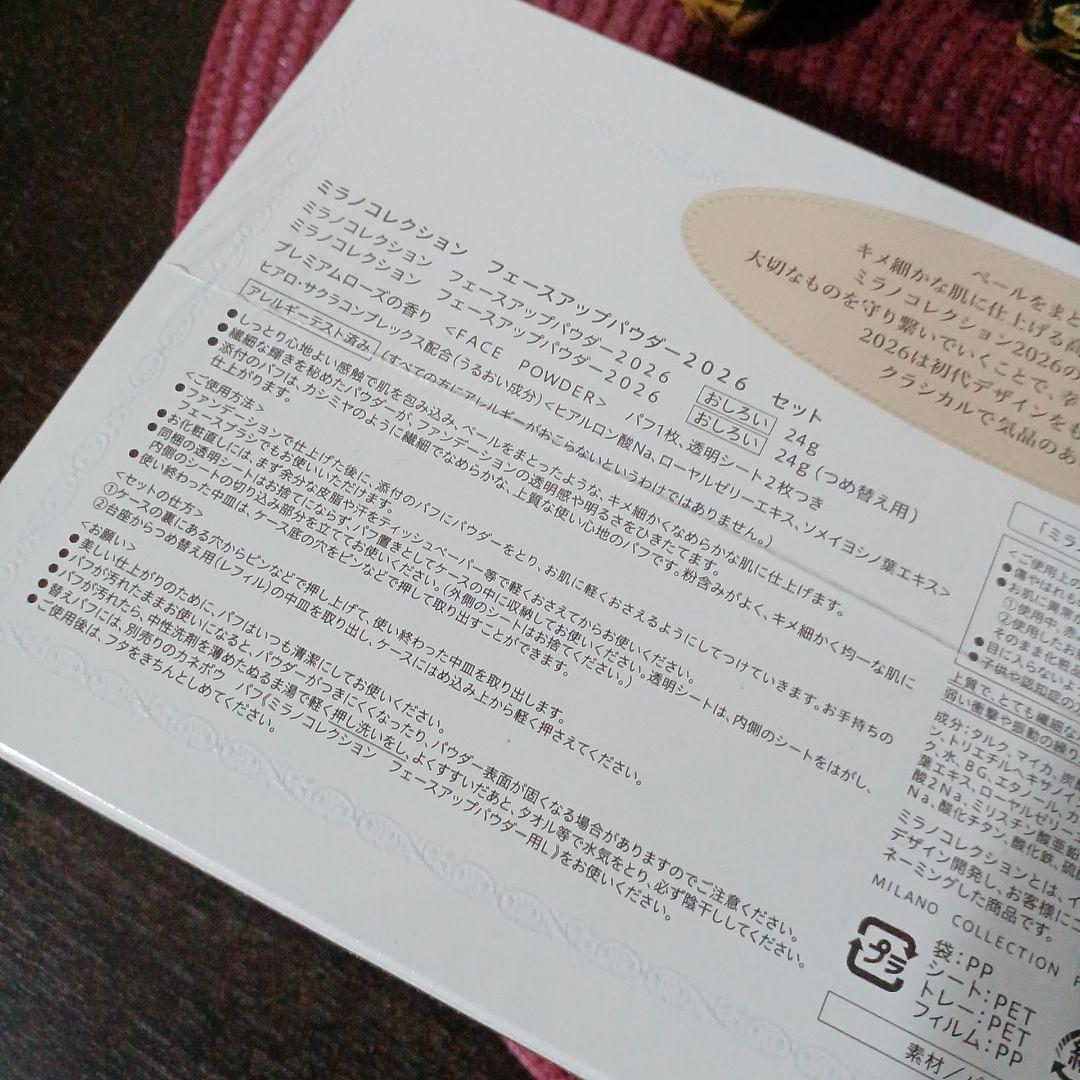 ミラノコレクション フェースアップパウダー2026 セット
ミラノコレクション フェースアップパウダー2026 おしろい 24g
ミラノコレクション フェースアップパウダー2026 おしろい 24g(つめ替え用)
プレミアムローズの香り <FACE POWDER> パフ1枚、透明シート2枚つき
ヒアロ・サクラコンプレックス配合(うるおい成分)<ヒアルロン酸Na、ローヤルゼリーエキス、ソメイヨシノ葉エキス>
アレルギーテスト済み (すべての方にアレルギーがおこらないというわけではありません。)
●しっとり心地よい感触で肌を包み込み、ベールをまとったような、キメ細かくなめらかな肌に仕上げます。
●繊細な輝きを秘めたパウダーが、ファンデーションの透明感や明るさをひきたてます。
●添付のパフは、カシミヤのように繊細でなめらかな、上質な使い心地のパフです。粉含みがよく、キメ細かく均一な肌に
仕上がります。
<ご使用方法>
●ファンデーションで仕上げた後に、添付のパフにパウダーをとり、お肌に軽くおさえるようにしてつけていきます。お手持ちの
フェースブラシでもお使いいただけます。
●お化粧直しには、まず余分な皮脂や汗をティッシュペーパー等で軽くおさえてからお使いください。
●同梱の透明シートはお捨てにならず、パフ置きとしてケースの中に収納してお使いください。透明シートは、内側のシートをはがし、
内側のシートの切り込み部分を立ててお使いください。(外側のシートはお捨てください。)
●使い終わった中皿は、ケース底の穴をピンなどで押して取り出すことができます。
<セットの仕方>
①ケースの裏にある穴からピンなどで押し上げて、使い終わった中皿を取り出します。
②台座からつめ替え用(レフィル)の中皿を取り出し、ケースにはめ込み上から軽く押さえてください。
<お願い>
●美しい仕上がりのために、パフはいつも清潔にしてお使いください。
●パフが汚れたままお使いになると、パウダーがつきにくくなったり、パウダー表面が固くなる場合がありますのでご注意ください。
●パフが汚れたら、中性洗剤を薄めたぬるま湯で軽く押し洗いをし、よくすすいだあと、タオル等で水気をとり、必ず陰干ししてください。
●替えパフには、別売りのカネボウ パフ《ミラノコレクション フェースアップパウダー用L》をお使いください。
●ご使用後は、フタをきちんとしめてください。
ベールをまと
キメ細かな肌に仕上げる高
ミラノコレクション2026の
大切なものを守り繋いでいくことで、幸
2026は初代デザインをも
クラシカルで気品のあ
「ミラ
<ご使用上の
●傷やはれも
●お肌に異常が
①使用中、赤
②使用したお
そのまま化粧品
●目に入らないよ
●子供や認知症の方
上質で、とても繊細な
弱い衝撃や振動の繰り
成分:タルク、マイカ、
ン、トリエチルヘキサノイ
ク、水、BG、エタノール、カ
葉エキス、ローヤルゼリー
酸2Na、ミリスチン酸亜鉛
Na、酸化チタン、酸化鉄、硫
ミラノコレクションとは、イ
デザイン開発し、お客様にニ
ネーミングした商品です。
MILANO COLLECTION
プラ
袋:PP
シート:PET
トレー:PET
フィルム:PP
素材/